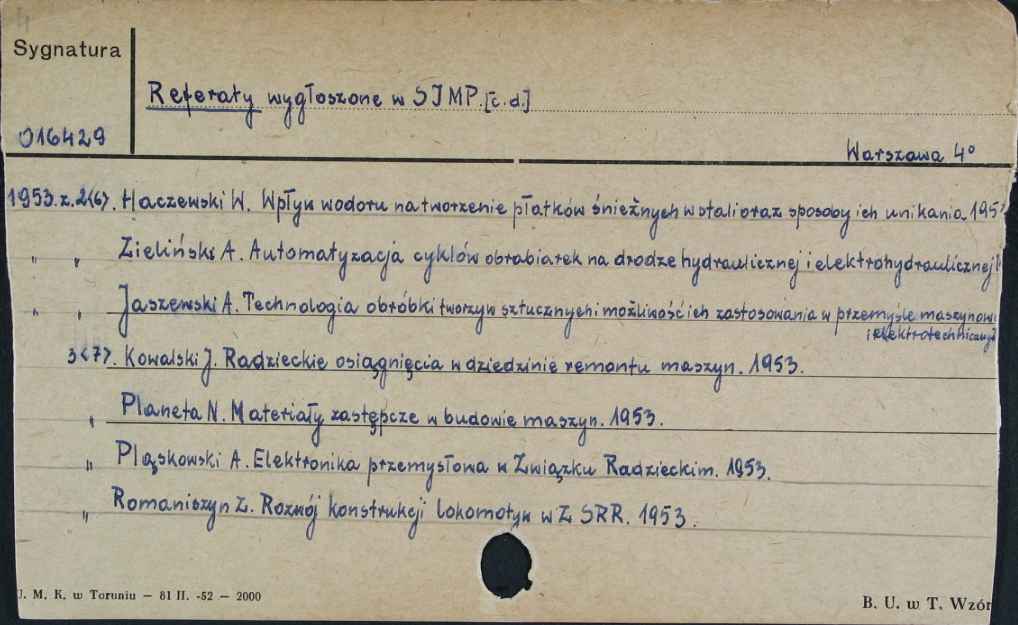 Sygnatura
Referaty wygłoszone w SIMP. [c.d.]
016429
Warszawa 4°
1953.z.2<6>. Haczewski W. Wpływ wodoru na tworzenie płatków śnieżnych w stali oraz sposoby ich unikania 195
" " Zieliński A. Automatyzacja cyklów obrabiarek na drodze hydraulicznej i elektrohydraulicznej
" " Jaszewski A. Technologia obróbki tworzyw sztucznych i możliwość ich zastosowania w przemyśle maszynowi
i elektrotechnicznym
3<7>. Kowalski J. Radzieckie osiągnięcia w dziedzinie remontu maszyn. 1953.
" Planeta N. Materiały zastępcze w budowie maszyn. 1953.
" Pląskowski A. Elektronika przemysłowa w Związku Radzieckim. 1953.
" Romaniszyn Z. Rozwój konstrukcji lokomotyw w Z SRR. 1953.
U. M. K. w Toruniu — 81 II. -52 — 2000
B. U. w T. Wzór